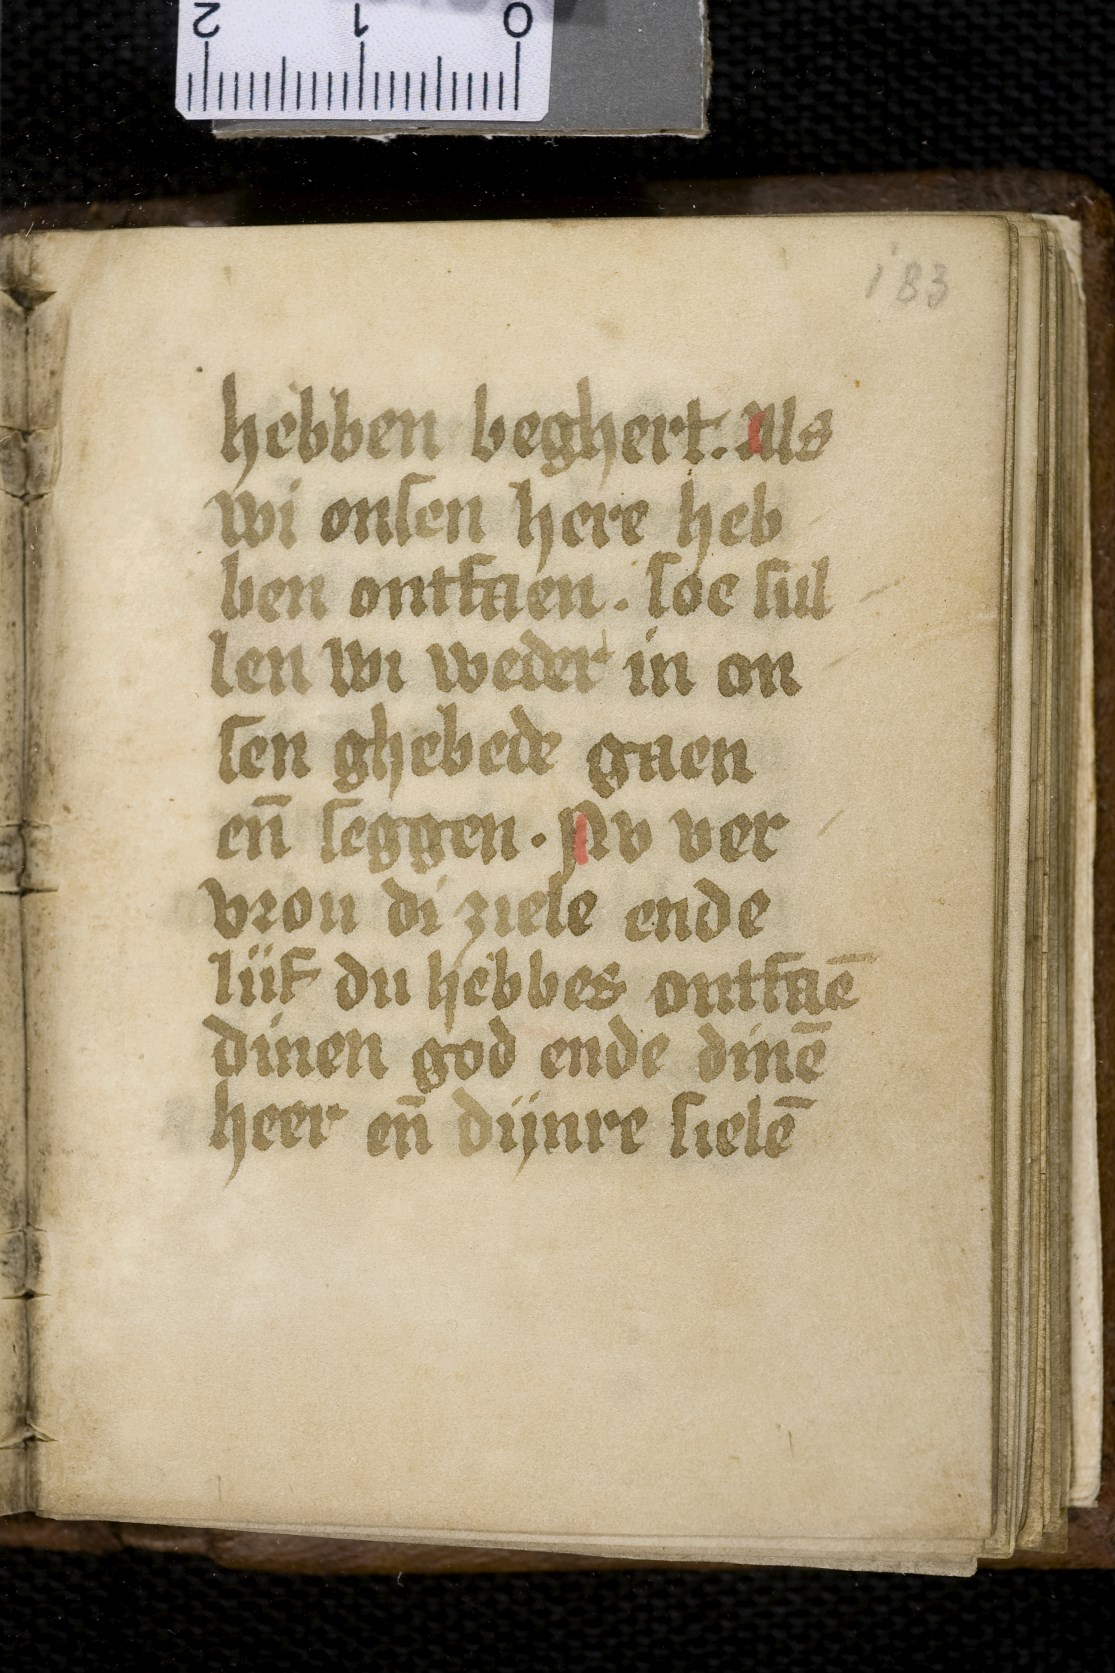 2 1 0
183
hebben beghert. Als
wi onsen here heb
ben ontfaen. soe sul
len wi weder in on
sen ghebede gaen
en̄ seggen. Nv ver
vrou di ziele ende
lijf du hebbes ontfaē
dinen god ende dinē
heer en̄ dijnre sielē